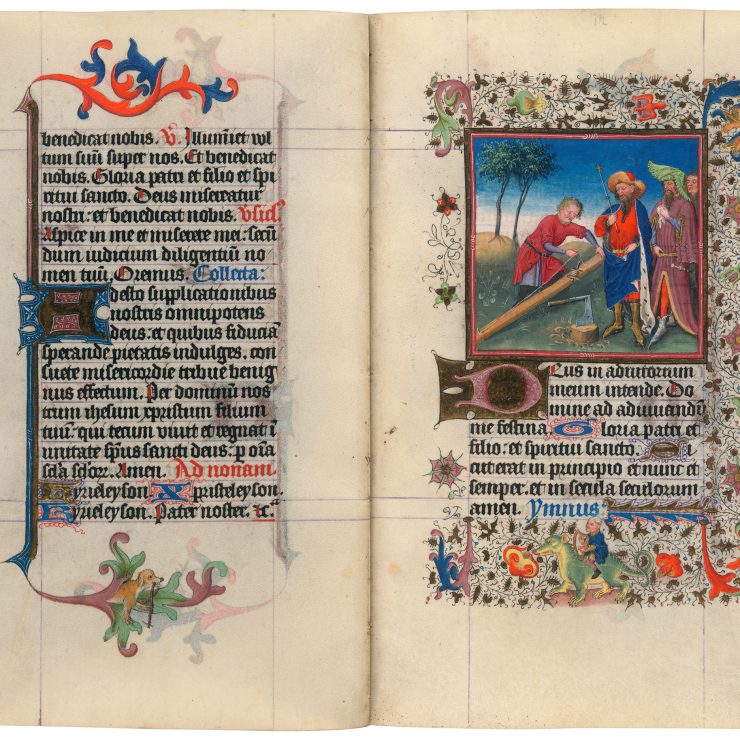 benedicat nobis. V. Illumīet vul
tum suū super nos. Et benedicat
nobis. Gloria patri et filio et spi
ritui sancto. Deus misereatur
nostri. et benedicat nobis. Vsicł.
Aspice in me et miserere mei. secū
dum iudicium diligentiū no
men tuū. Oremus. Collecta:
Adesto supplicationibus
nostris omnipotens
deus. et quibus fiduciā
sperande pietatis indulges. con
suete misericordie tribue benig
nus effectum. Per dominū nos
trum ihesum xpristum filium
tuū. qui tecum vivit et regnat ī
unitate spūs sancti deus. p oīa
scła scłorƺ. Amen. Ad nonam.
Kyrieleyson. Xpristeleyson.
Kyrieleyson. Pater noster. ꝛc̄.
Deus in adiutorium
meum intende. Do
mine ad adiuvandū
me festina. Gloria patri et
filio. et spiritui sancto. Si
cut erat in principio et nunc et
semper. et in secula seculorum
amen. Ymnus: